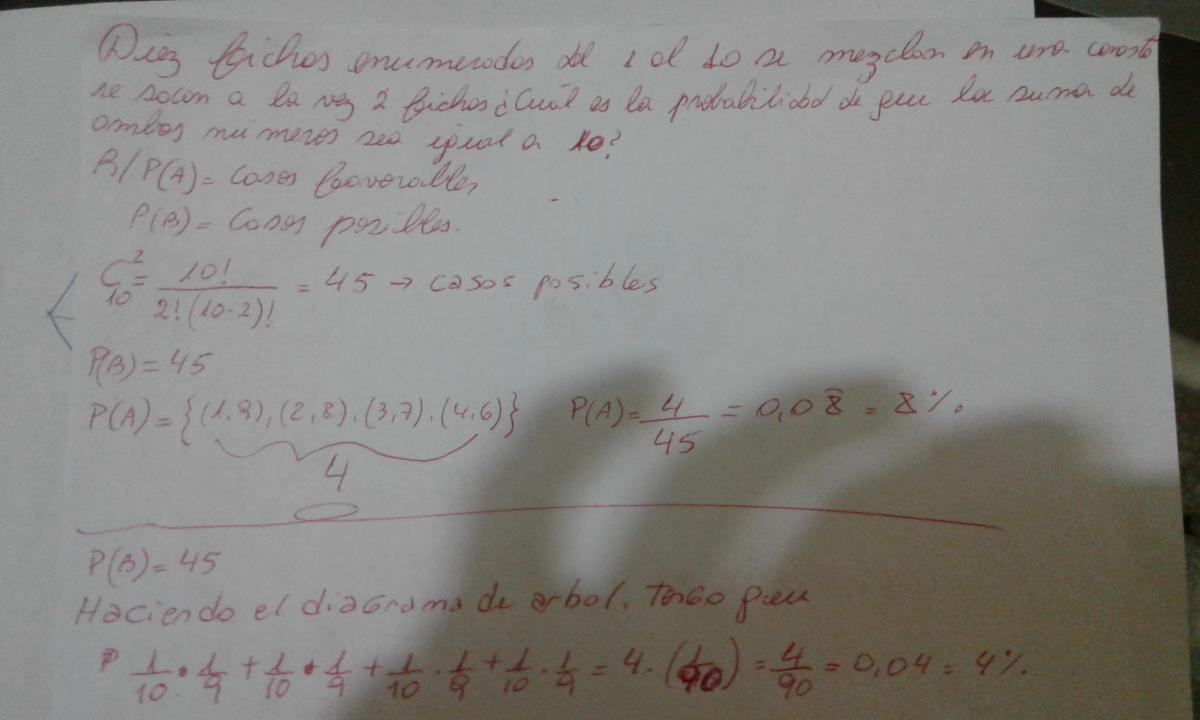 Diez fichas enumeradas del 1 al 10 se mezclan en una canasta
se sacan a la vez 2 fichas ¿Cuál es la probabilidad de que la suma de
ambos números sea igual a 10?
R/ P(A) = Casos favorables
P(B) = Casos posibles.
C₁₀² = 10! / 2!(10-2)! = 45 → casos posibles
P(B) = 45
P(A) = {(1,9), (2,8), (3,7), (4,6)} P(A) = 4/45 = 0,08 = 8%.
4
P(B) = 45
Haciendo el diagrama de arbol. Tengo que
P 1/10 · 1/9 + 1/10 · 1/9 + 1/10 · 1/9 + 1/10 · 1/9 = 4 · (1/90) = 4/90 = 0,04 = 4%.